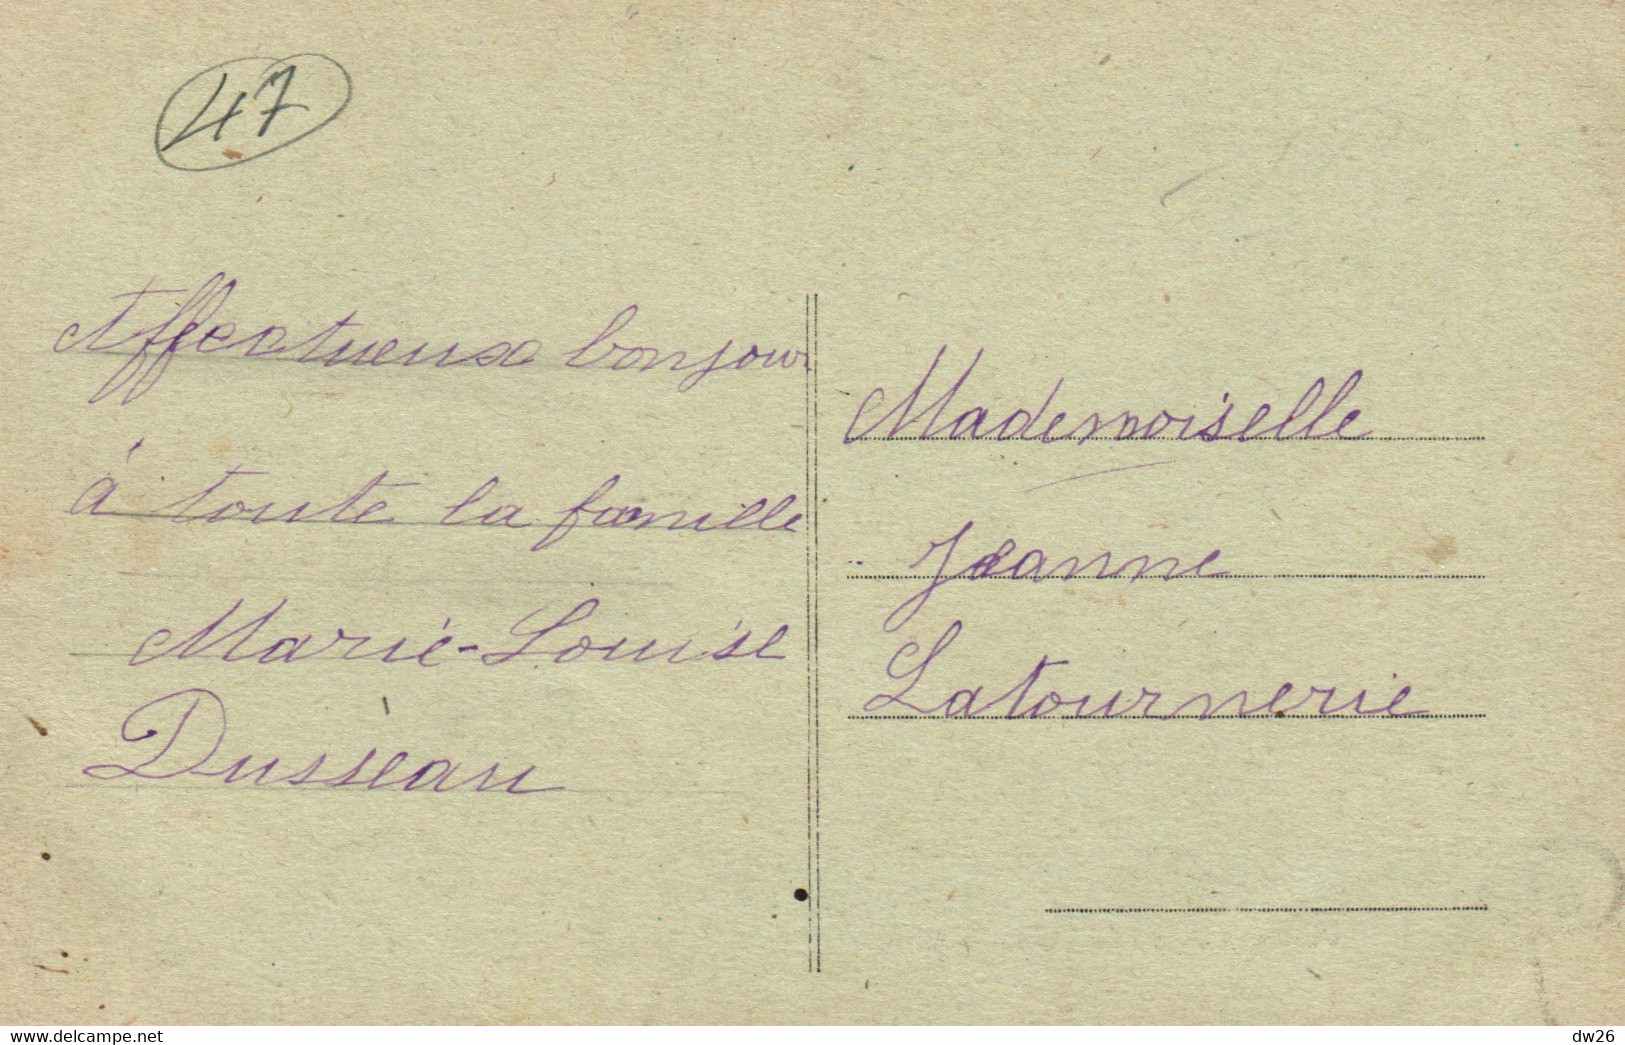 47
Affectueux bonjour
à toute la famille
Marie-Louise
Dusseau
Mademoiselle
Jeanne
Latournerie
www.delcampe.net
dw26